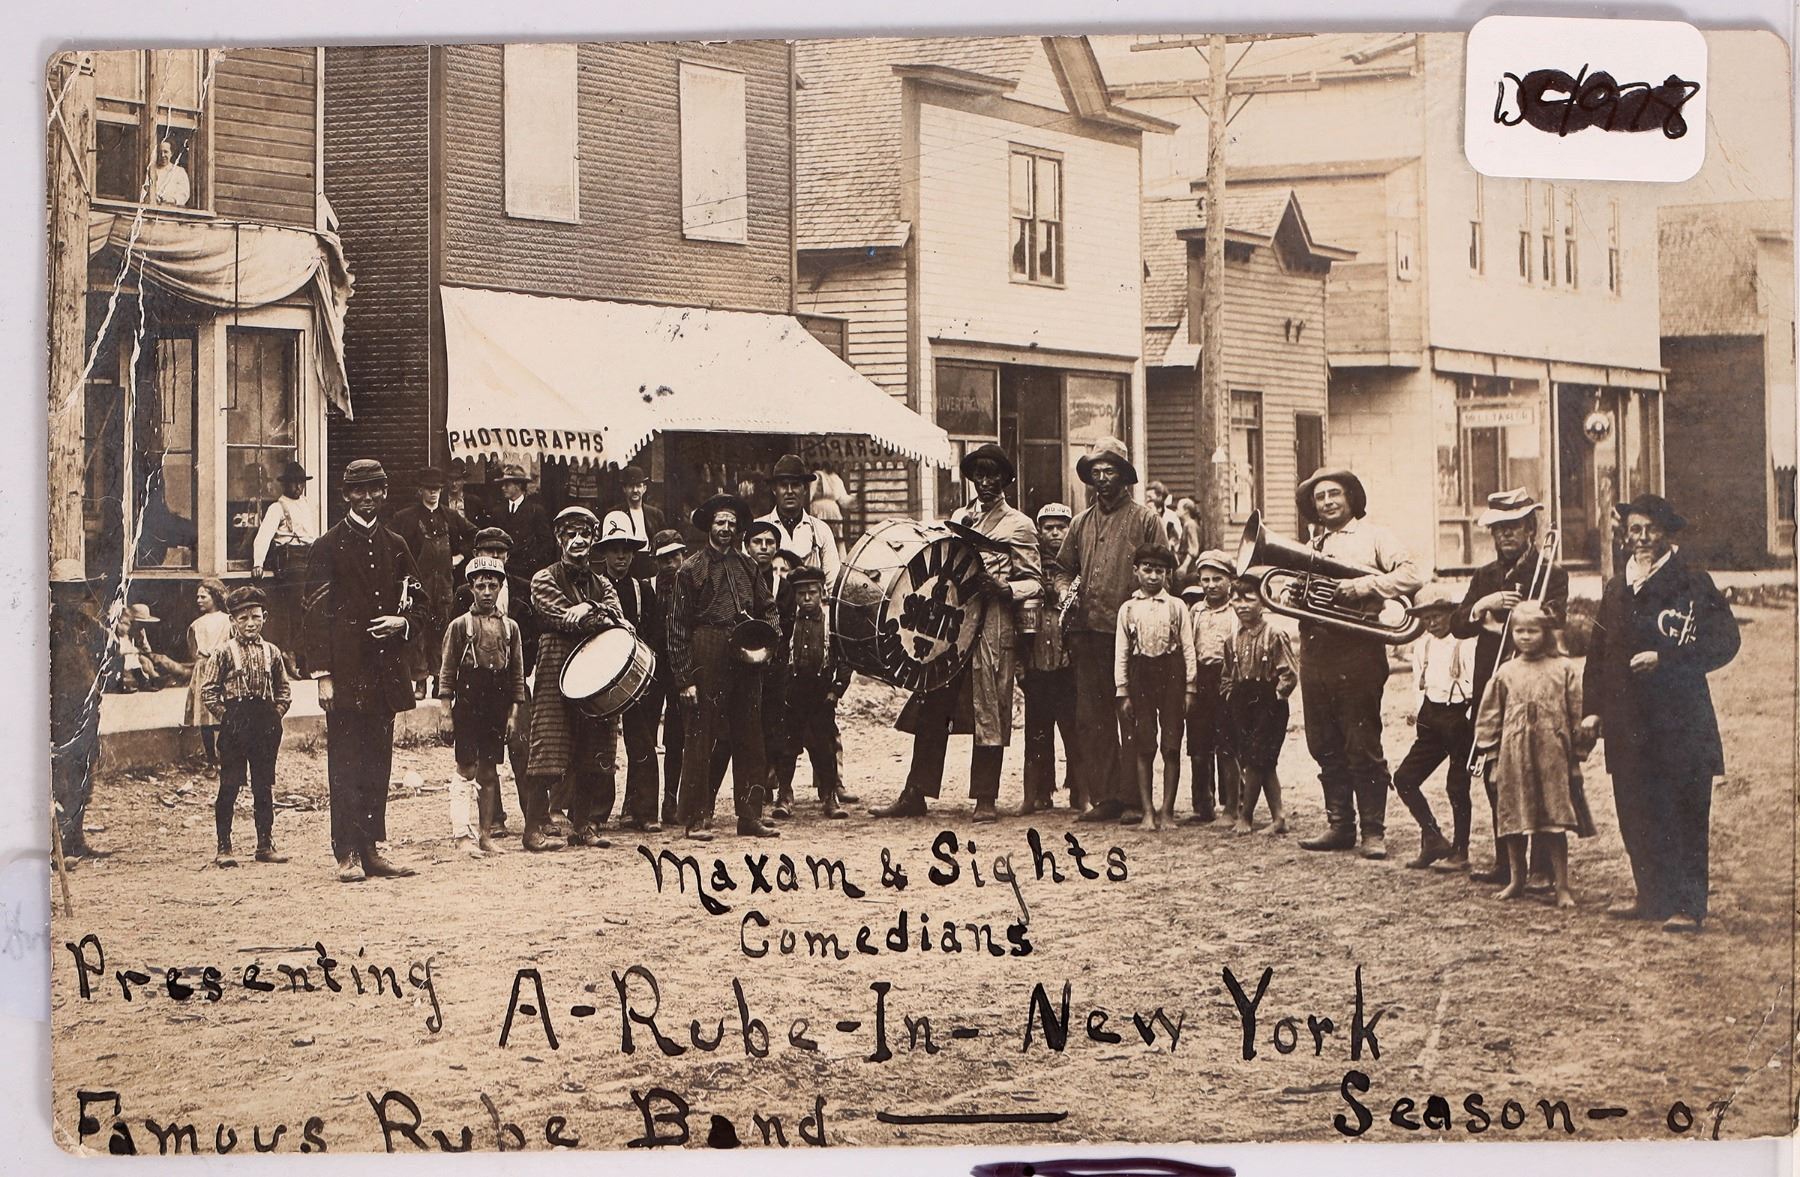 D4978
PHOTOGRAPHS
BIG JO
BIG JO
Maxam & Sights
Comedians
Presenting
A-Rube-In-New York
Famous Rube Band — Season - 07